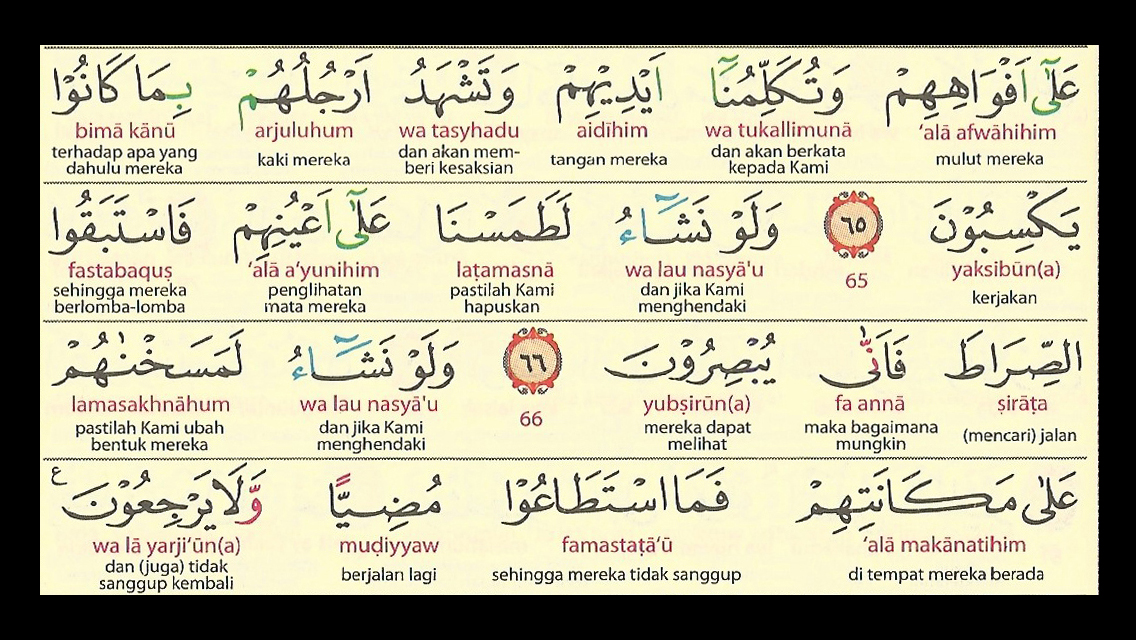 عَلٰٓى اَفْوَاهِهِمْ وَتُكَلِّمُنَآ اَيْدِيْهِمْ وَتَشْهَدُ اَرْجُلُهُمْ بِمَا كَانُوْا
‘alā afwāhihim wa tukallimunā aidīhim wa tasyhadu arjuluhum bimā kānū
mulut mereka dan akan berkata kepada Kami tangan mereka dan akan mem-beri kesaksian kaki mereka terhadap apa yang dahulu mereka
يَكْسِبُوْنَ ٦٥ وَلَوْ نَشَاۤءُ لَطَمَسْنَا عَلٰٓى اَعْيُنِهِمْ فَاسْتَبَقُوا
yaksibūn(a) 65 wa lau nasyā'u laṭamasnā ‘alā a‘yunihim fastabaquṣ
kerjakan dan jika Kami menghendaki pastilah Kami hapuskan penglihatan mata mereka sehingga mereka berlomba-lomba
الصِّرَاطَ فَاَنّٰى يُبْصِرُوْنَ ٦٦ وَلَوْ نَشَاۤءُ لَمَسَخْنٰهُمْ
ṣirāṭa fa annā yubṣirūn(a) 66 wa lau nasyā'u lamasakhnāhum
(mencari) jalan maka bagaimana mungkin mereka dapat melihat dan jika Kami menghendaki pastilah Kami ubah bentuk mereka
عَلٰى مَكَانَتِهِمْ فَمَا اسْتَطَاعُوْا مُضِيًّا وَّلَا يَرْجِعُوْنَ ع
‘alā makānatihim famastaṭā‘ū muḍiyyaw wa lā yarji‘ūn(a)
di tempat mereka berada sehingga mereka tidak sanggup berjalan lagi dan (juga) tidak sanggup kembali